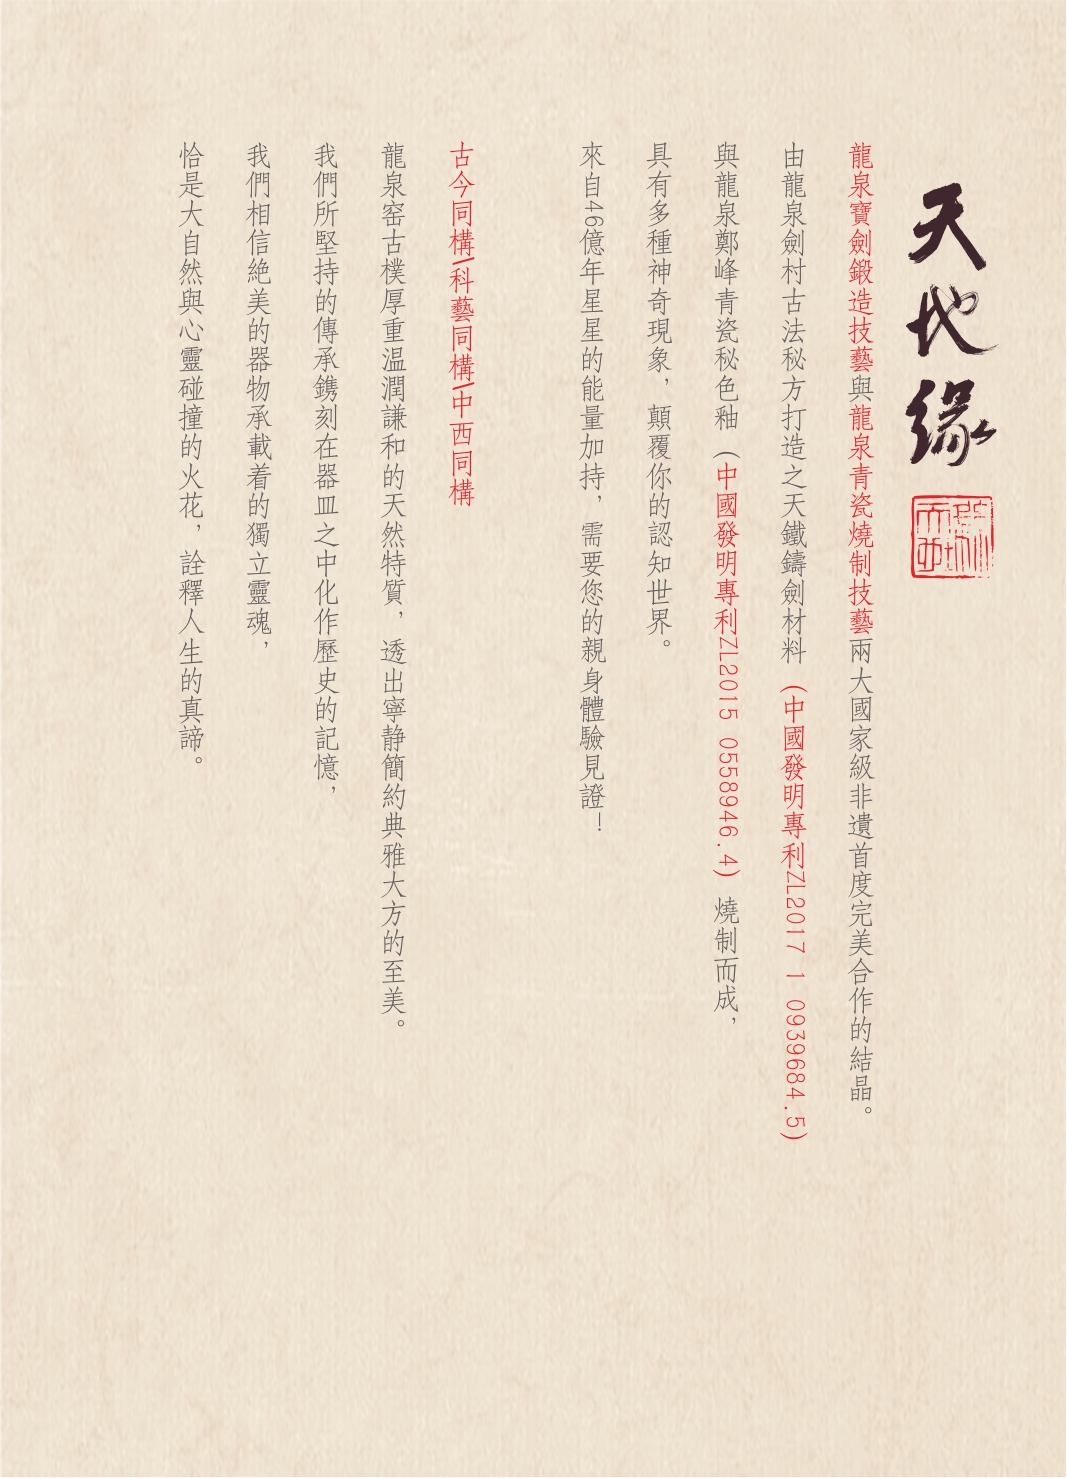 天地緣
龍泉寶劍鍛造技藝與龍泉青瓷燒制技藝兩大國家級非遺首度完美合作的結晶。
由龍泉劍村古法秘方打造之天鐵鑄劍材料(中國發明專利ZL2017 1 0939684.5)
與龍泉鄭峰青瓷秘色釉(中國發明專利ZL2015 0558946.4)燒制而成,
具有多種神奇現象,顛覆你的認知世界。
來自46億年星星的能量加持,需要您的親身體驗見證!
古今同構/科藝同構/中西同構
龍泉窑古樸厚重温潤謙和的天然特質,透出寧静簡約典雅大方的至美。
我們所堅持的傳承鐫刻在器皿之中化作歷史的記憶,
我們相信絶美的器物承載着的獨立靈魂,
恰是大自然與心靈碰撞的火花,詮釋人生的真諦。